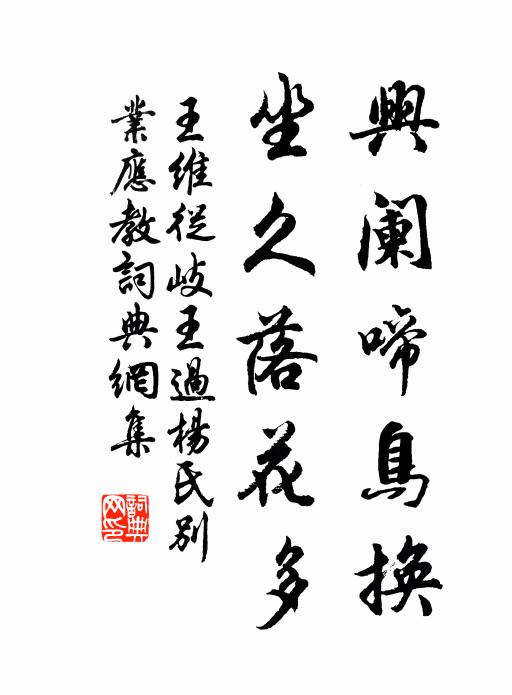 興阑啼鳥換
坐久落花多
王維從岐王過楊氏別
業應教詞典網集
詞典网印